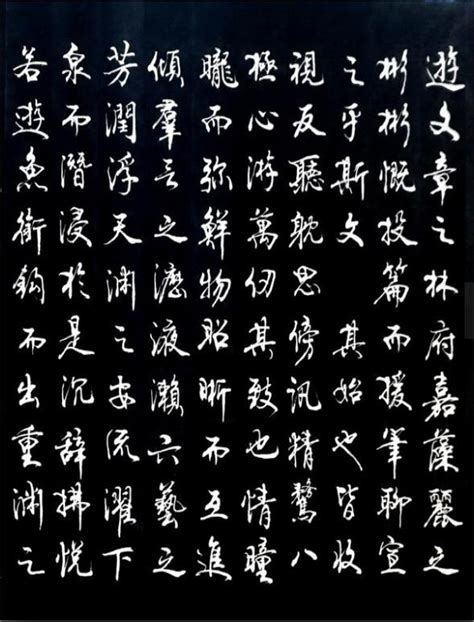 遊文章之林府嘉藻麗之
彬彬慨投篇而援筆聊宣
之乎斯文 其始也皆收
視反聽耽思傍訊精鶩八
極心游萬仞其致也情曈
曨而弥鮮物昭晰而互進
傾羣言之瀝液漱六藝之
芳潤浮天淵之安流濯下
泉而潛浸於是沉辭拂悅
若遊魚銜鉤而出重淵之